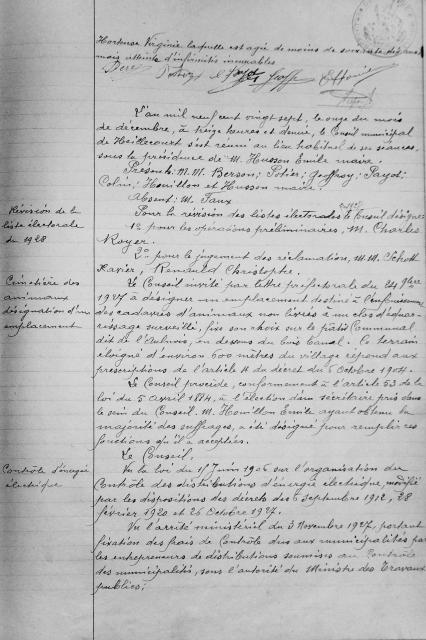 Hortense Virginie laquelle est agée de moins de soixante dix ans
mais atteinte d'infirmités incurables
L'an mil neuf cent vingt sept, le onze du mois
de décembre, à treize heures et demie, le Conseil municipal
de Heillecourt s'est réuni au lieu habituel de ses séances,
sous la présidence de M. Husson Emile maire.
Présents: M.M. Berson; Potier; Geoffroy; Payot;
Colin; Houillon et Husson maire.
Absent: M. Faux
Révision de la
liste électorale
de 1928
Pour la révision des listes électorales le Conseil désigne
1º pour les opérations préliminaires, M. Charles
Royer.
2º pour le jugement des réclamation, M.M. Schott
Xavier, Renauld Christophe.
Cimetière des
animaux
désignation d'un
emplacement
Le Conseil invité par lettre préfectorale du 24 9bre
1927 à désigner un emplacement destiné à l'enfouissement
des cadavres d'animaux non livrés à un clos d'équar-
rissage surveillé, fixe son choix sur le pâtis Communal
dit de l'Aulnois, en dessous du bois Canal. Ce terrain
éloigné d'environ 600 mètres du village répond aux
prescriptions de l'article 4 du décret du 6 Octobre 1904.
Le Conseil procède, conformément à l'article 53 de la
loi du 5 avril 1884, à l'élection d'un sécrétaire pris dans
le sein du Conseil. M. Houillon Emile ayant obtenu la
majorité des suffrages, a été désigné pour remplir ces
fonctions qu'il a acceptées.
Contrôle d'énergie
électrique
Le Conseil,
Vu la loi du 15 Juin 1906 sur l'organisation du
Contrôle des distributions d'énergie électrique, modifié
par les dispositions des décrets des 6 Septembre 1912, 28
février 1920 et 26 Octobre 1927.
Vu l'arrêté ministériel du 3 Novembre 1927, portant
fixation des frais de Contrôle dus aux municipalités par
les entrepreneurs de distributions soumises au Contrôle
des municipalités, sous l'autorité du Ministre des Travaux
publics;